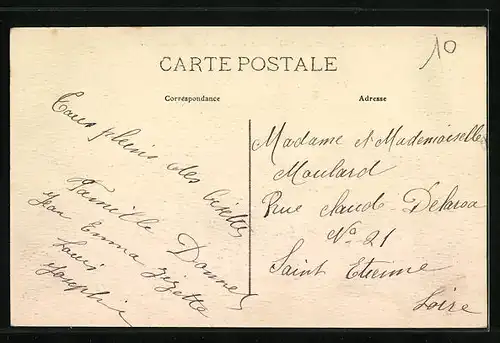 10
CARTE POSTALE
Correspondance
Adresse
pleins des
Famille Donnet
Jean Emma Zizette
Louis
Joséphine
Madame et Mademoiselle
Moulard
Rue Claude-Delaroa
No 21
Saint Etienne
Loire